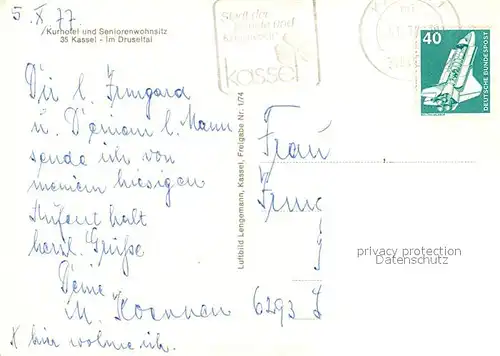 5. X. 77
Kurhotel und Seniorenwohnsitz
35 Kassel - Im Druseltal
Stadt der
kassel
40
DEUTSCHE BUNDESPOST
Dir l. Irmgard
u. Deinem l. Mann
sende ich von
meinem hiesigen
Aufenthalt
herzl. Grüße
Deine
M.
X hier wohne ich.
Luftbild Lengemann, Kassel, Freigabe Nr. 1/74
Frau
6293 L
privacy protection
Datenschutz